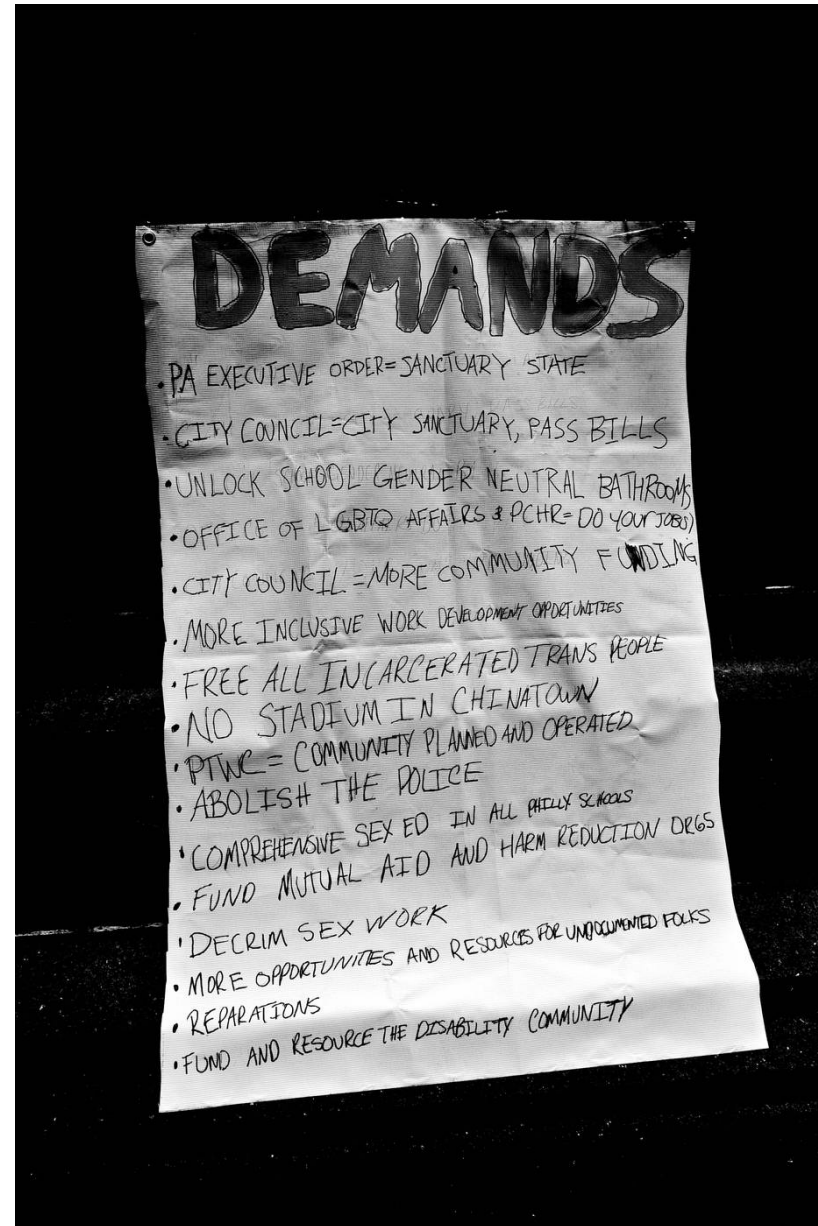 DEMANDS
• PA EXECUTIVE ORDER = SANCTUARY STATE
• CITY COUNCIL = CITY SANCTUARY, PASS BILLS
• UNLOCK SCHOOL GENDER NEUTRAL BATHROOMS
• OFFICE OF LGBTQ AFFAIRS & PCHR = DO YOUR JOBS)
• CITY COUNCIL = MORE COMMUNITY FUNDING
• MORE INCLUSIVE WORK DEVELOPMENT OPPORTUNITIES
• FREE ALL INCARCERATED TRANS PEOPLE
• NO STADIUM IN CHINATOWN
• PTWC = COMMUNITY PLANNED AND OPERATED
• ABOLISH THE POLICE
• COMPREHENSIVE SEX ED IN ALL PHILLY SCHOOLS
• FUND MUTUAL AID AND HARM REDUCTION ORGS
• DECRIM SEX WORK
• MORE OPPORTUNITIES AND RESOURCES FOR UNDOCUMENTED FOLKS
• REPARATIONS
• FUND AND RESOURCE THE DISABILITY COMMUNITY